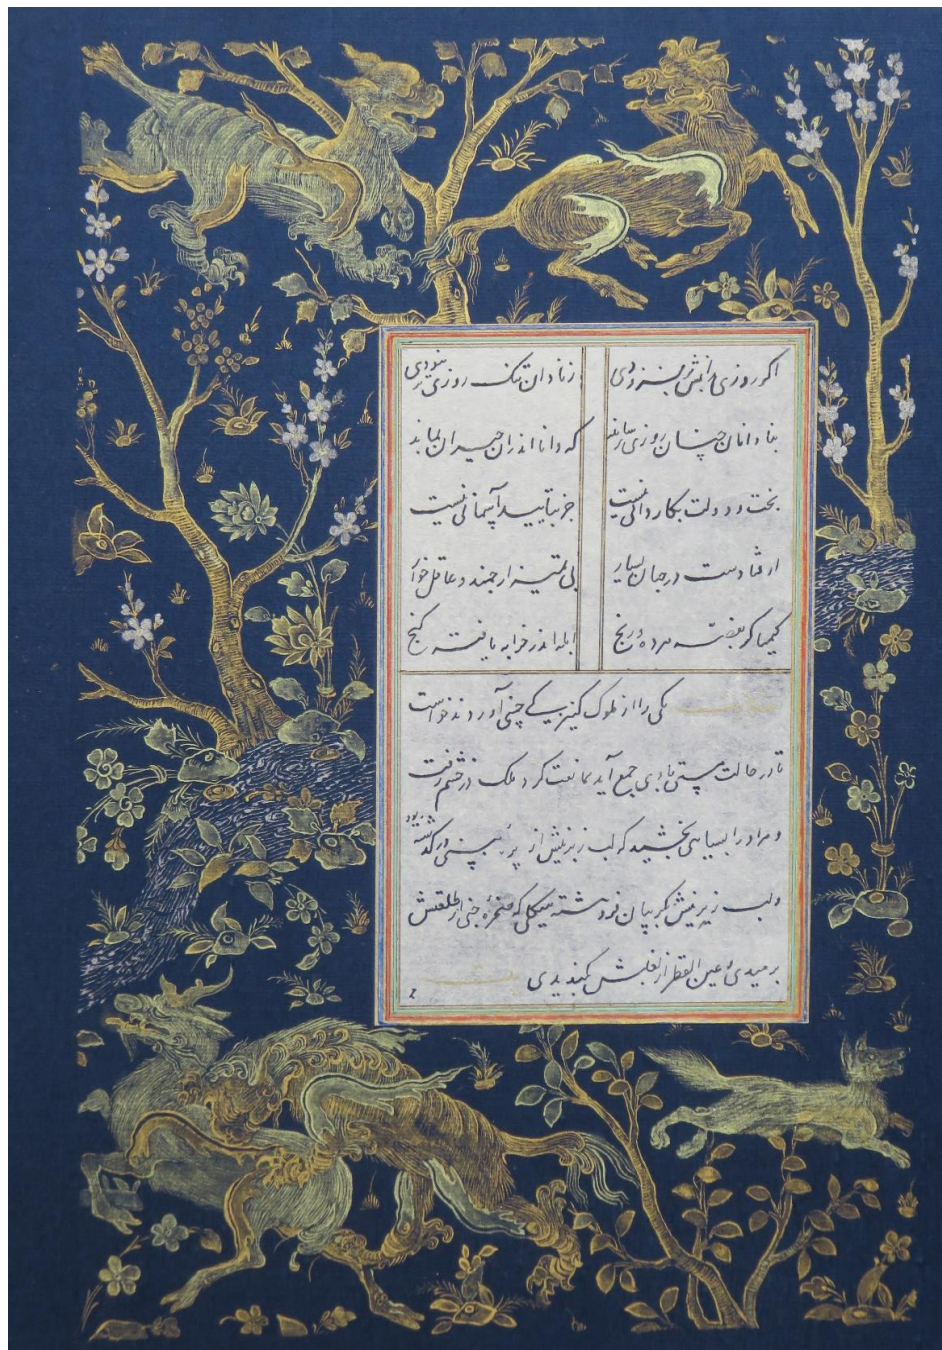 اکر روزی بدانش بر فزودی زنادان تنک روزی تر نبودی
بنادانان چنان روزی رساند که دانا اندران حیران بماند
بخت و دولت بکاردانی نیست جز بتایید آسمانی نیست
اوفتادست در جهان بسیار بی تمیز ارجمند و عاقل خوار
کیمیاکر بغصه مرده و رنج ابله اندر خرابه یافته کنج
یکی را از ملوک کنیزکی چینی آوردند خواست
تا در حالت مستی با وی جمع آید ممانعت کرد ملک در خشم رفت
و مر او را بسیاهی بخشید که لب زبرینش از پره بینی در کذشته بود
و لب زیرینش بکریبان فرو هشته هیکلی که صخره جنی از طلعتش
برمیدی و عین القطر از بغلش بکندیدی